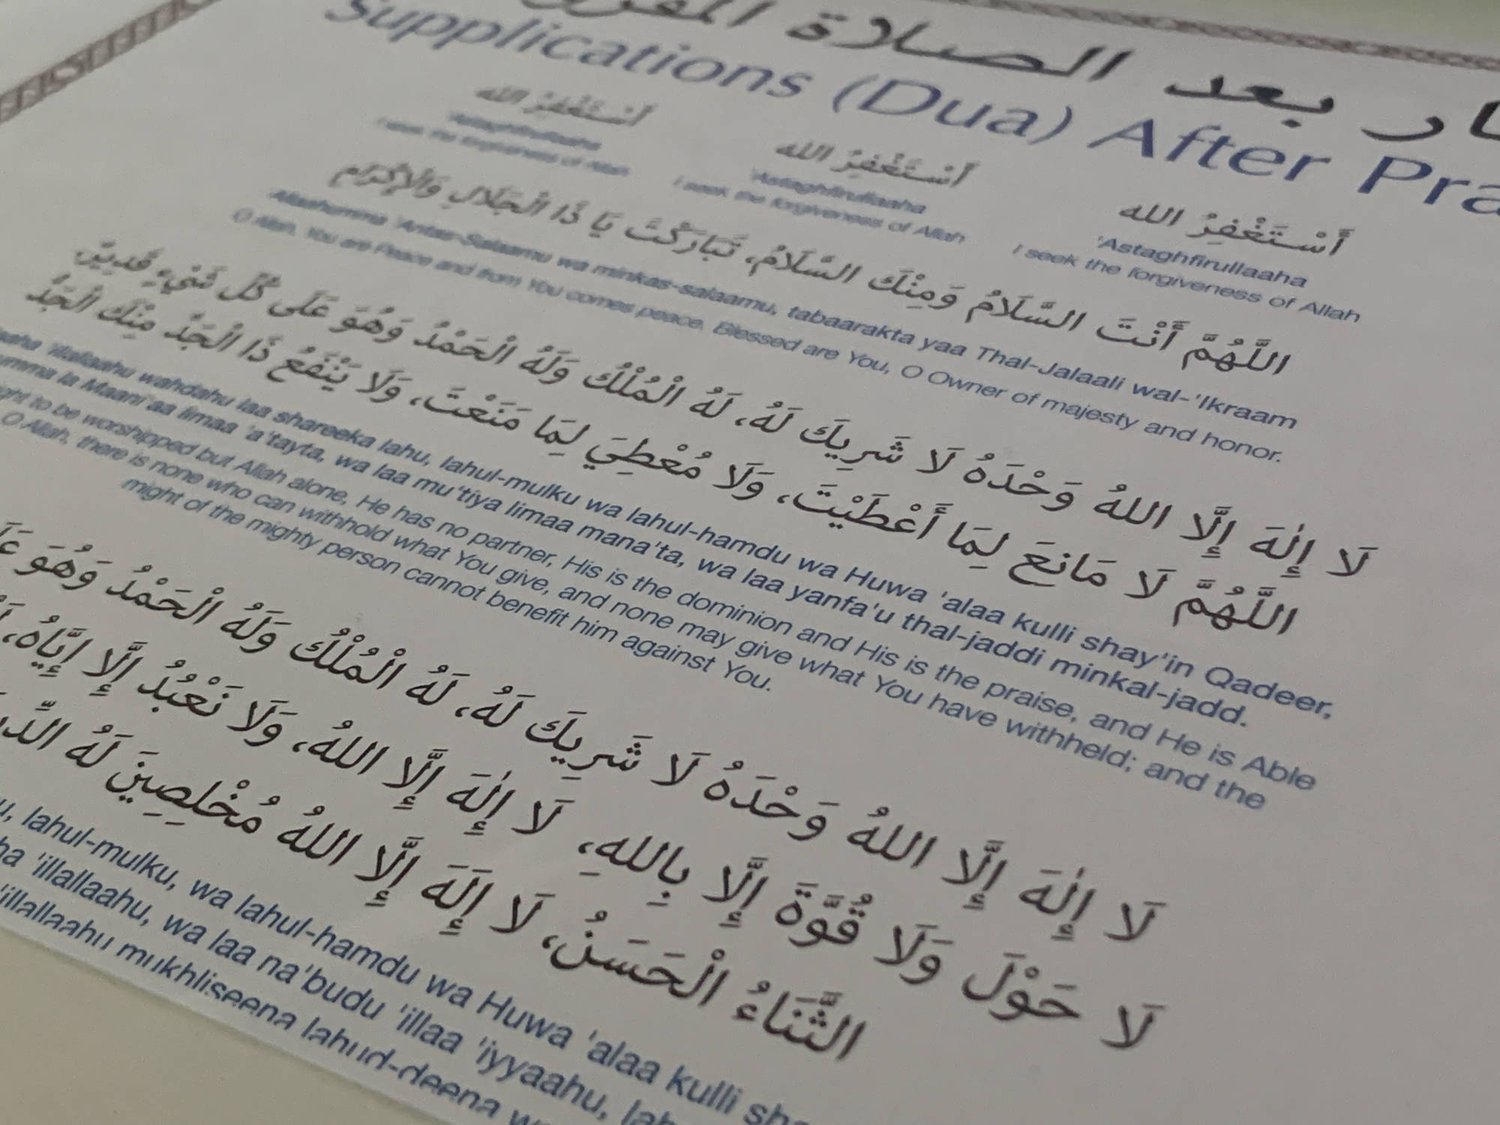 بعد الصلاة
Supplications (Dua) After
أَسْتَغْفِرُ الله أَسْتَغْفِرُ الله أَسْتَغْفِرُ الله
'Astaghfirullaaha 'Astaghfirullaaha 'Astaghfirullaaha
I seek the forgiveness of Allah I seek the forgiveness of Allah I seek the forgiveness of Allah
اللَّهُمَّ أَنْتَ السَّلَامُ وَمِنْكَ السَّلَامُ، تَبَارَكْتَ يَا ذَا الْجَلَالِ وَالْإِكْرَامِ
Allaahumma 'Antas-Salaamu wa minkas-salaamu, tabaarakta yaa Thal-Jalaali wal-'Ikraam
O Allah, You are Peace and from You comes peace. Blessed are You, O Owner of majesty and honor.
لَا إِلٰهَ إِلَّا اللهُ وَحْدَهُ لَا شَرِيكَ لَهُ، لَهُ الْمُلْكُ وَلَهُ الْحَمْدُ وَهُوَ عَلَى كُلِّ شَيْءٍ قَدِيرٌ،
اللَّهُمَّ لَا مَانِعَ لِمَا أَعْطَيْتَ، وَلَا مُعْطِيَ لِمَا مَنَعْتَ، وَلَا يَنْفَعُ ذَا الْجَدِّ مِنْكَ الْجَدُّ
'illallaahu wahdahu laa shareeka lahu, lahul-mulku wa lahul-hamdu wa Huwa 'alaa kulli shay'in Qadeer,
la Maani'aa limaa 'a'tayta, wa laa mu'tiya limaa mana'ta, wa laa yanfa'u thal-jaddi minkal-jadd.
to be worshipped but Allah alone. He has no partner, His is the dominion and His is the praise, and He is Able
O Allah, there is none who can withhold what You give, and none may give what You have withheld; and the
might of the mighty person cannot benefit him against You.
لَا إِلٰهَ إِلَّا اللهُ وَحْدَهُ لَا شَرِيكَ لَهُ، لَهُ الْمُلْكُ وَلَهُ الْحَمْدُ وَهُوَ
لَا حَوْلَ وَلَا قُوَّةَ إِلَّا بِاللهِ، لَا إِلٰهَ إِلَّا اللهُ، وَلَا نَعْبُدُ إِلَّا إِيَّاهُ،
الثَّنَاءُ الْحَسَنُ، لَا إِلَهَ إِلَّا اللهُ مُخْلِصِينَ لَهُ
lahul-mulku, wa lahul-hamdu wa Huwa 'alaa kulli
'illallaahu, wa laa na'budu 'illaa 'iyyaahu,
'illallaahu mukhliseena lahud-deena